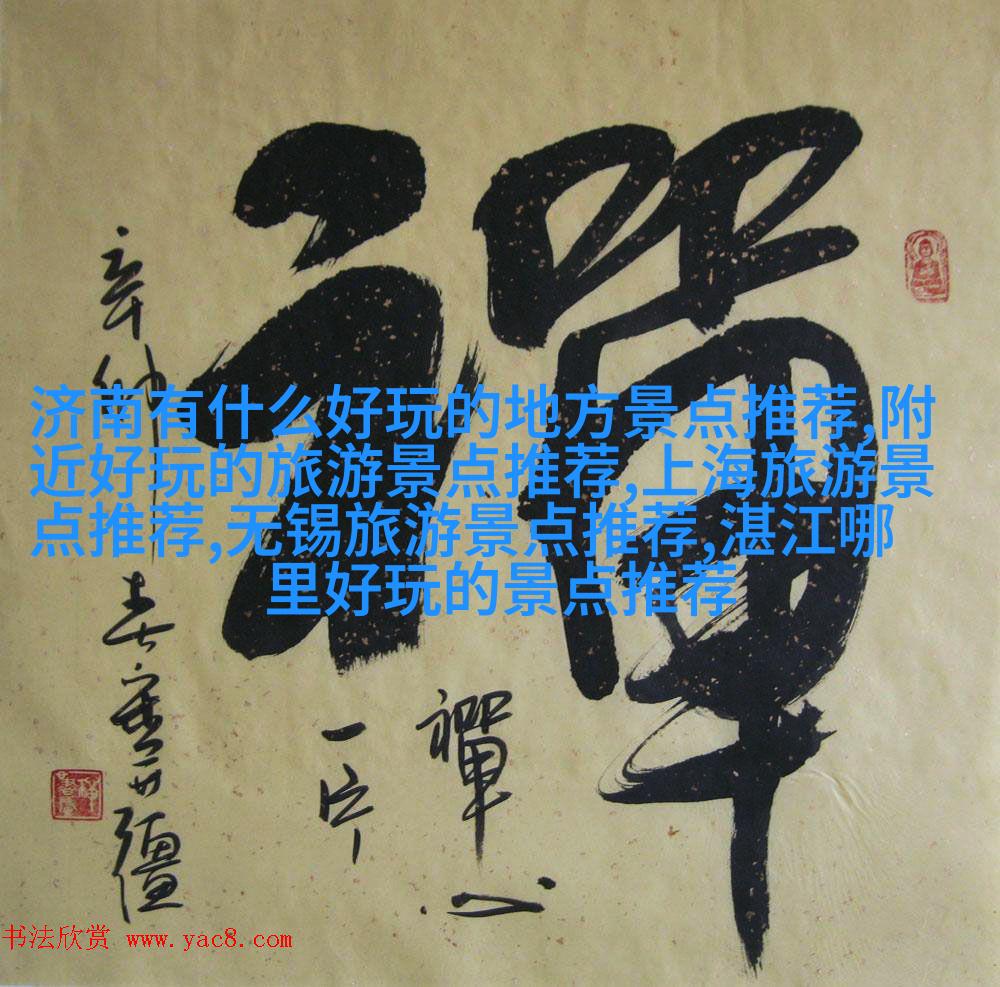 禪
禪心
一片
济南有什么好玩的地方景点推荐,附
近好玩的旅游景点推荐,上海旅游景
点推荐,无锡旅游景点推荐,湛江哪
里好玩的景点推荐
书法欣赏 www.yac8.com